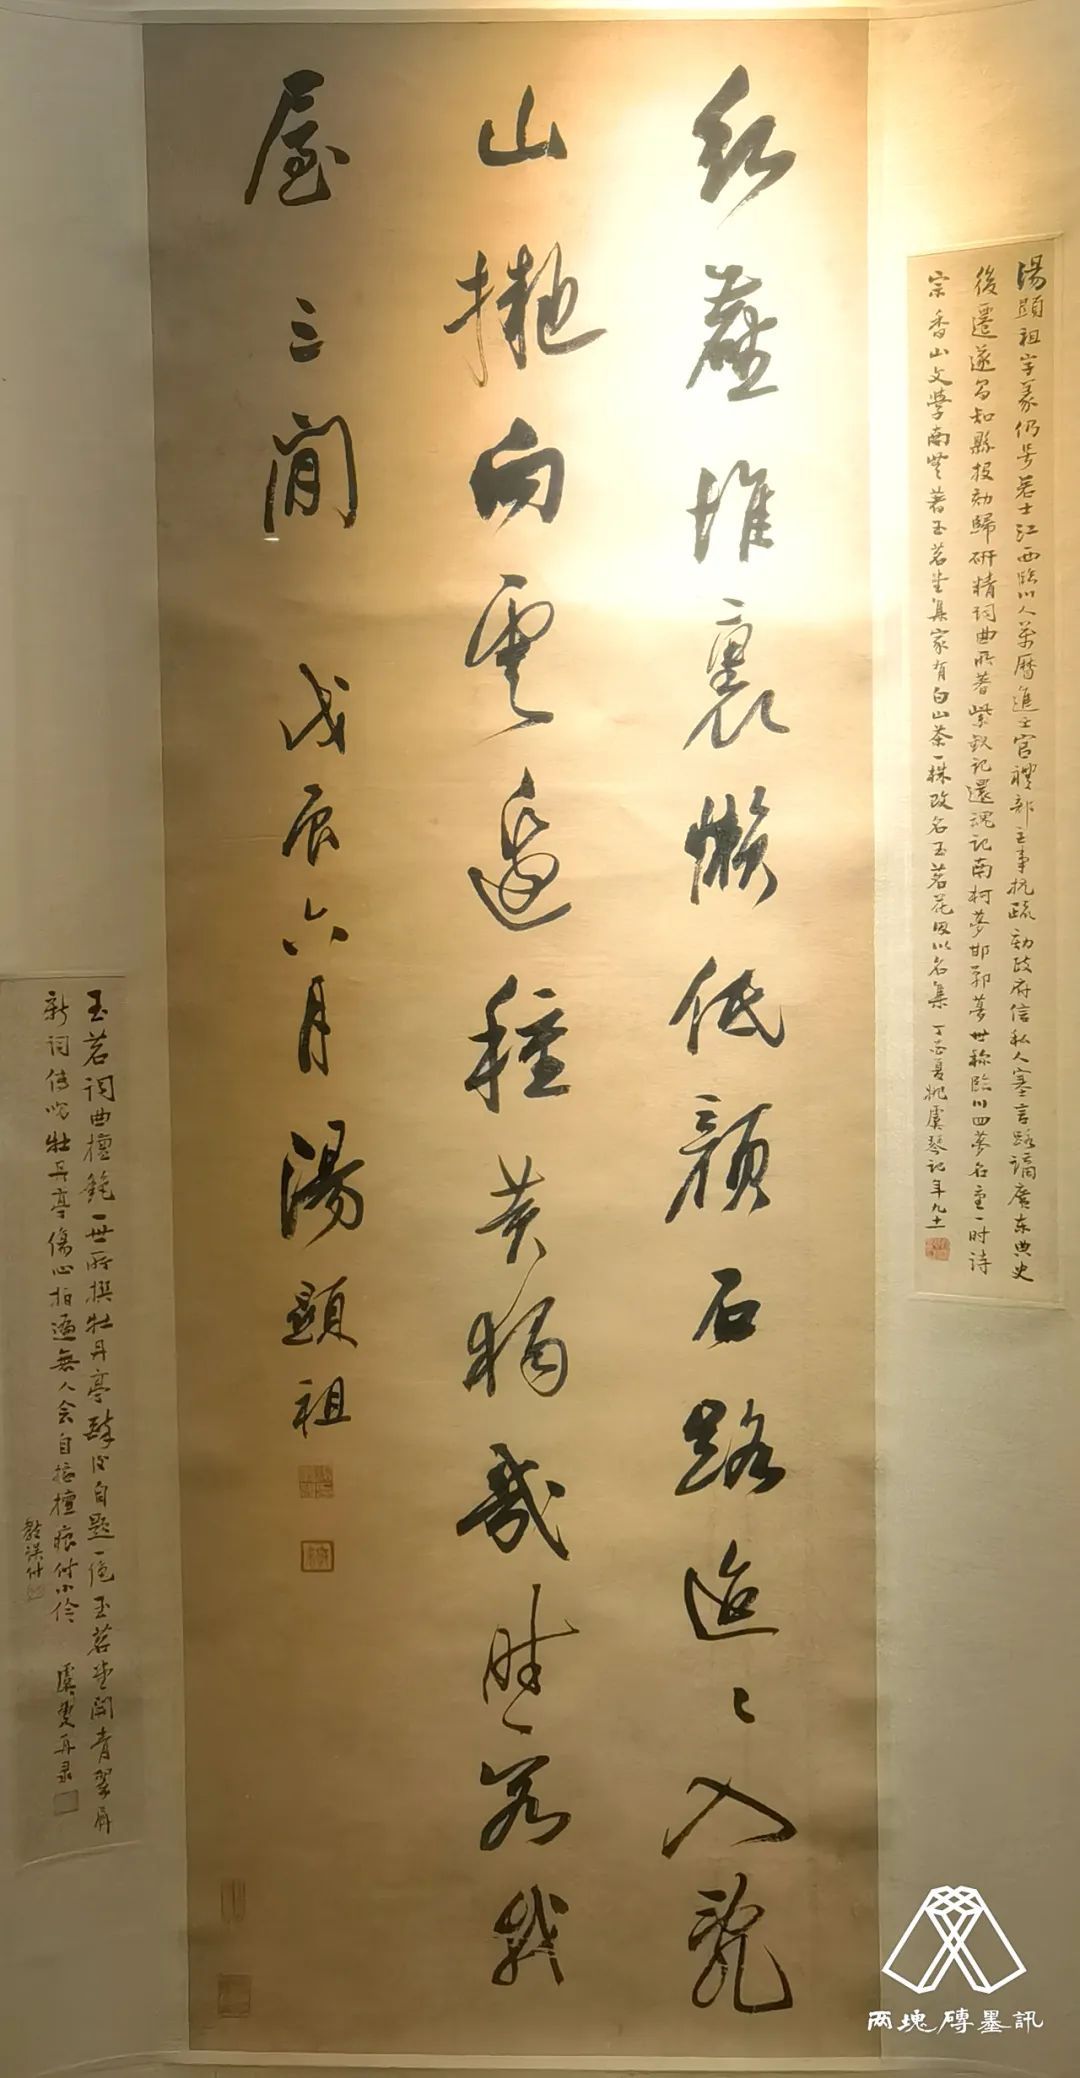 紅塵堆裏懶低顏石路迢々入亂
山擬向雲邊種黃獨幾時容我
屋三間 戊辰六月湯顯祖
湯顯祖字義仍号若士江西臨川人萬曆進士官禮部主事抗疏劾政府信私人塞言路謫廣东典史
後遷遂昌知縣投劾歸研精詞曲所著紫釵記還魂記南柯夢邯鄲夢世稱臨川四夢名重一时詩
宗香山文學南豐著玉茗堂集家有白山茶一株改名玉茗花因以名集 丁酉夏姚虞琴記年九十一
玉茗詞曲擅絕一世所撰牡丹亭後自題一絕玉茗堂開青翠屏
新詞傳唱牡丹亭傷心拍遍無人会自掐檀痕付小伶 虞琴再录
两塊磚墨訊